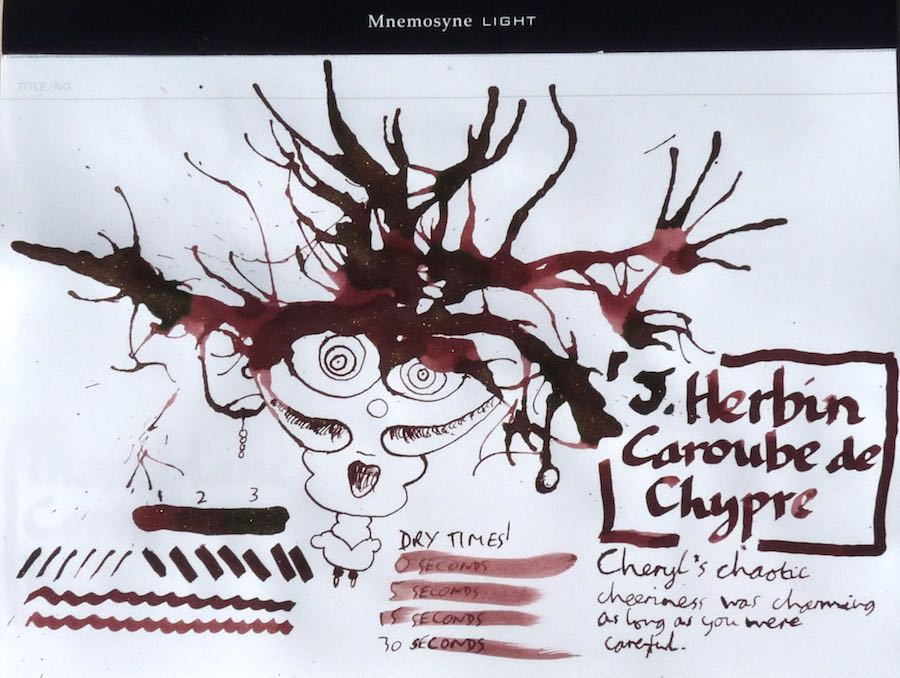 Mnemosyne LIGHT
TITLE / NO.
J. Herbin
Caroube de
Chypre
1 2 3
DRY TIMES!
0 SECONDS
5 SECONDS
15 SECONDS
30 SECONDS
Cheryl's chaotic
cheeriness was charming
as long as you were
careful.